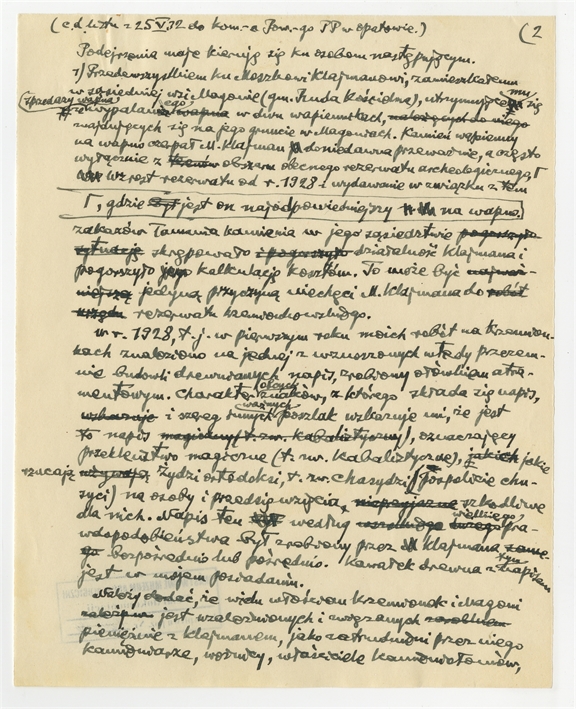 (c.d. listu z 25 V. 32 do kom-a Pow-go PP w Opatowie.) (2
Podejrzenia moje kierują się ku osobom następującym.
1) Przedewszystkiem ku Moszkowi Klajmanowi, zamieszkałemu
w sąsiedniej wsi Magonie (gm. Ruda Kościelna), utrzymującemu się
z sprzedaży wapna wypalanego w dwu wapiennikach, należących do niego
znajdujących się na jego gruncie w Magoniach. Kamień wapienny
na wapno czerpał M. Klajman do niedawna przeważnie, a często
wyłącznie z obszaru obecnego rezerwatu archeologicznego, Γ
wzrost rezerwatu od r. 1928 i wydawanie w związku z tem
Γ, gdzie jest on najodpowiedniejszy na wapno.
zakazów łamania kamienia w jego sąsiedztwie pogorszyło
sytuację skrępowało i pogorszyło działalność Klajmana i
pogorszyło jego kalkulację kosztów. To może być
jedyną przyczyną niechęci M. Klajmana do robót
rezerwatu krzemionkowskiego.
W r. 1928, t.j. w pierwszym roku moich robót na Krzemion-
kach znaleziono na jednej z wznoszonych wtedy przezem-
nie budowli drewnianych napis, zrobiony ołówkiem atra-
mentowym. Charakter obcych znaków, z którego składa się napis,
wskazuje i szereg innych ważnych poszlak wskazuje mi, że jest
to napis magiczny (t. zw. kabalistyczny), oznaczający
przekleństwo magiczne (t. zw. kabalistyczne), jakich jakie
rzucają używają Żydzi ortodoksi, t. zw. Chasydzi (pospolicie chu-
syci) na osoby i przedsięwzięcia, nieprzyjazne szkodliwe
dla nich. Napis ten według wszelkiego pra-
wdopodobieństwa był zrobiony przez M Klajmana same-
go bezpośrednio lub pośrednio. Kawałek drewna z tym napisem
jest w mojem posiadaniu.
Należy dodać, że wielu włościan Krzemionek i Magoni
jest uzależnionych i związanych
pieniężnie z Klajmanem, jako zatrudnieni przez niego
kamieniarze, woźnicy, właściciele kamieniołomów,